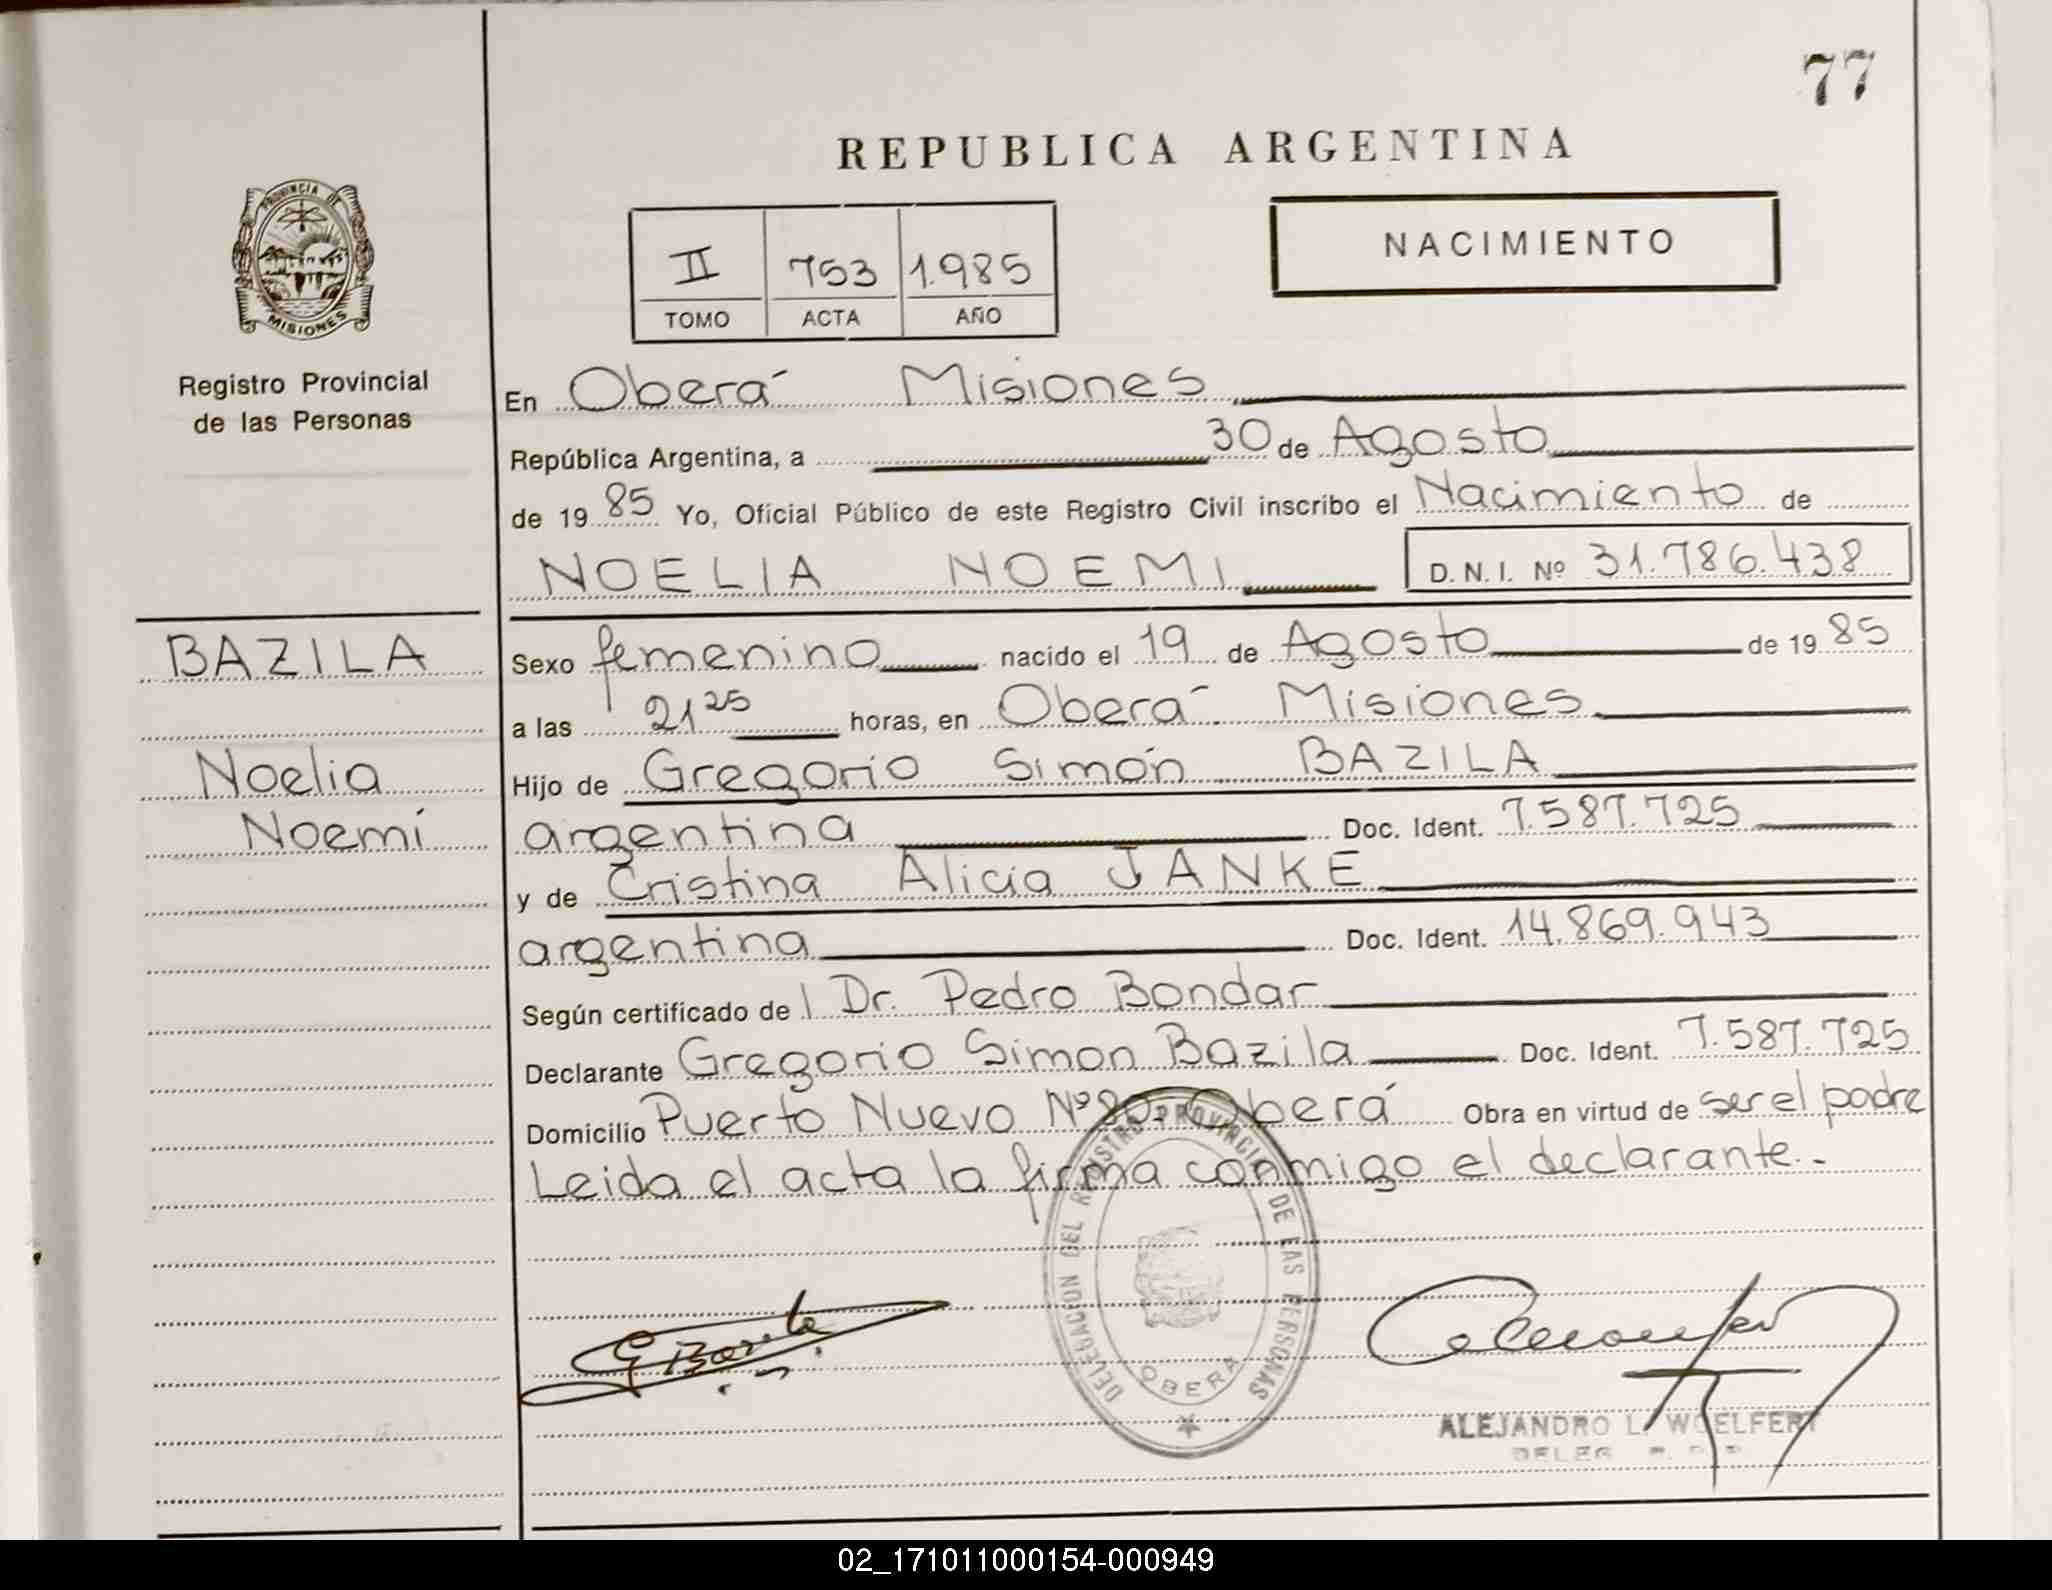 77
REPUBLICA ARGENTINA
PROVINCIA DE
MISIONES
Registro Provincial
de las Personas
II 753 1.985
TOMO ACTA AÑO
NACIMIENTO
En Oberá Misiones
República Argentina, a 30 de Agosto
de 19 85 Yo, Oficial Público de este Registro Civil inscribo el Nacimiento de
NOELIA NOEMI D.N.I. Nº 31.786.438
BAZILA
Noelia
Noemí
Sexo femenino nacido el 19 de Agosto de 19 85
a las 21 25 horas, en Oberá Misiones
Hijo de Gregorio Simón BAZILA
argentina Doc. Ident. 7.587.725
y de Cristina Alicia JANKE
argentina Doc. Ident. 14.869.943
Según certificado de l Dr. Pedro Bondar
Declarante Gregorio Simon Bazila Doc. Ident. 7.587.725
Domicilio Puerto Nuevo Nº 80. Oberá Obra en virtud de ser el padre
Leida el acta la firma conmigo el declarante.-
DELEGACION DEL REGISTRO PROVINCIAL DE LAS PERSONAS
OBERA
ALEJANDRO L. WOELFERT
DELEG
02_171011000154-000949